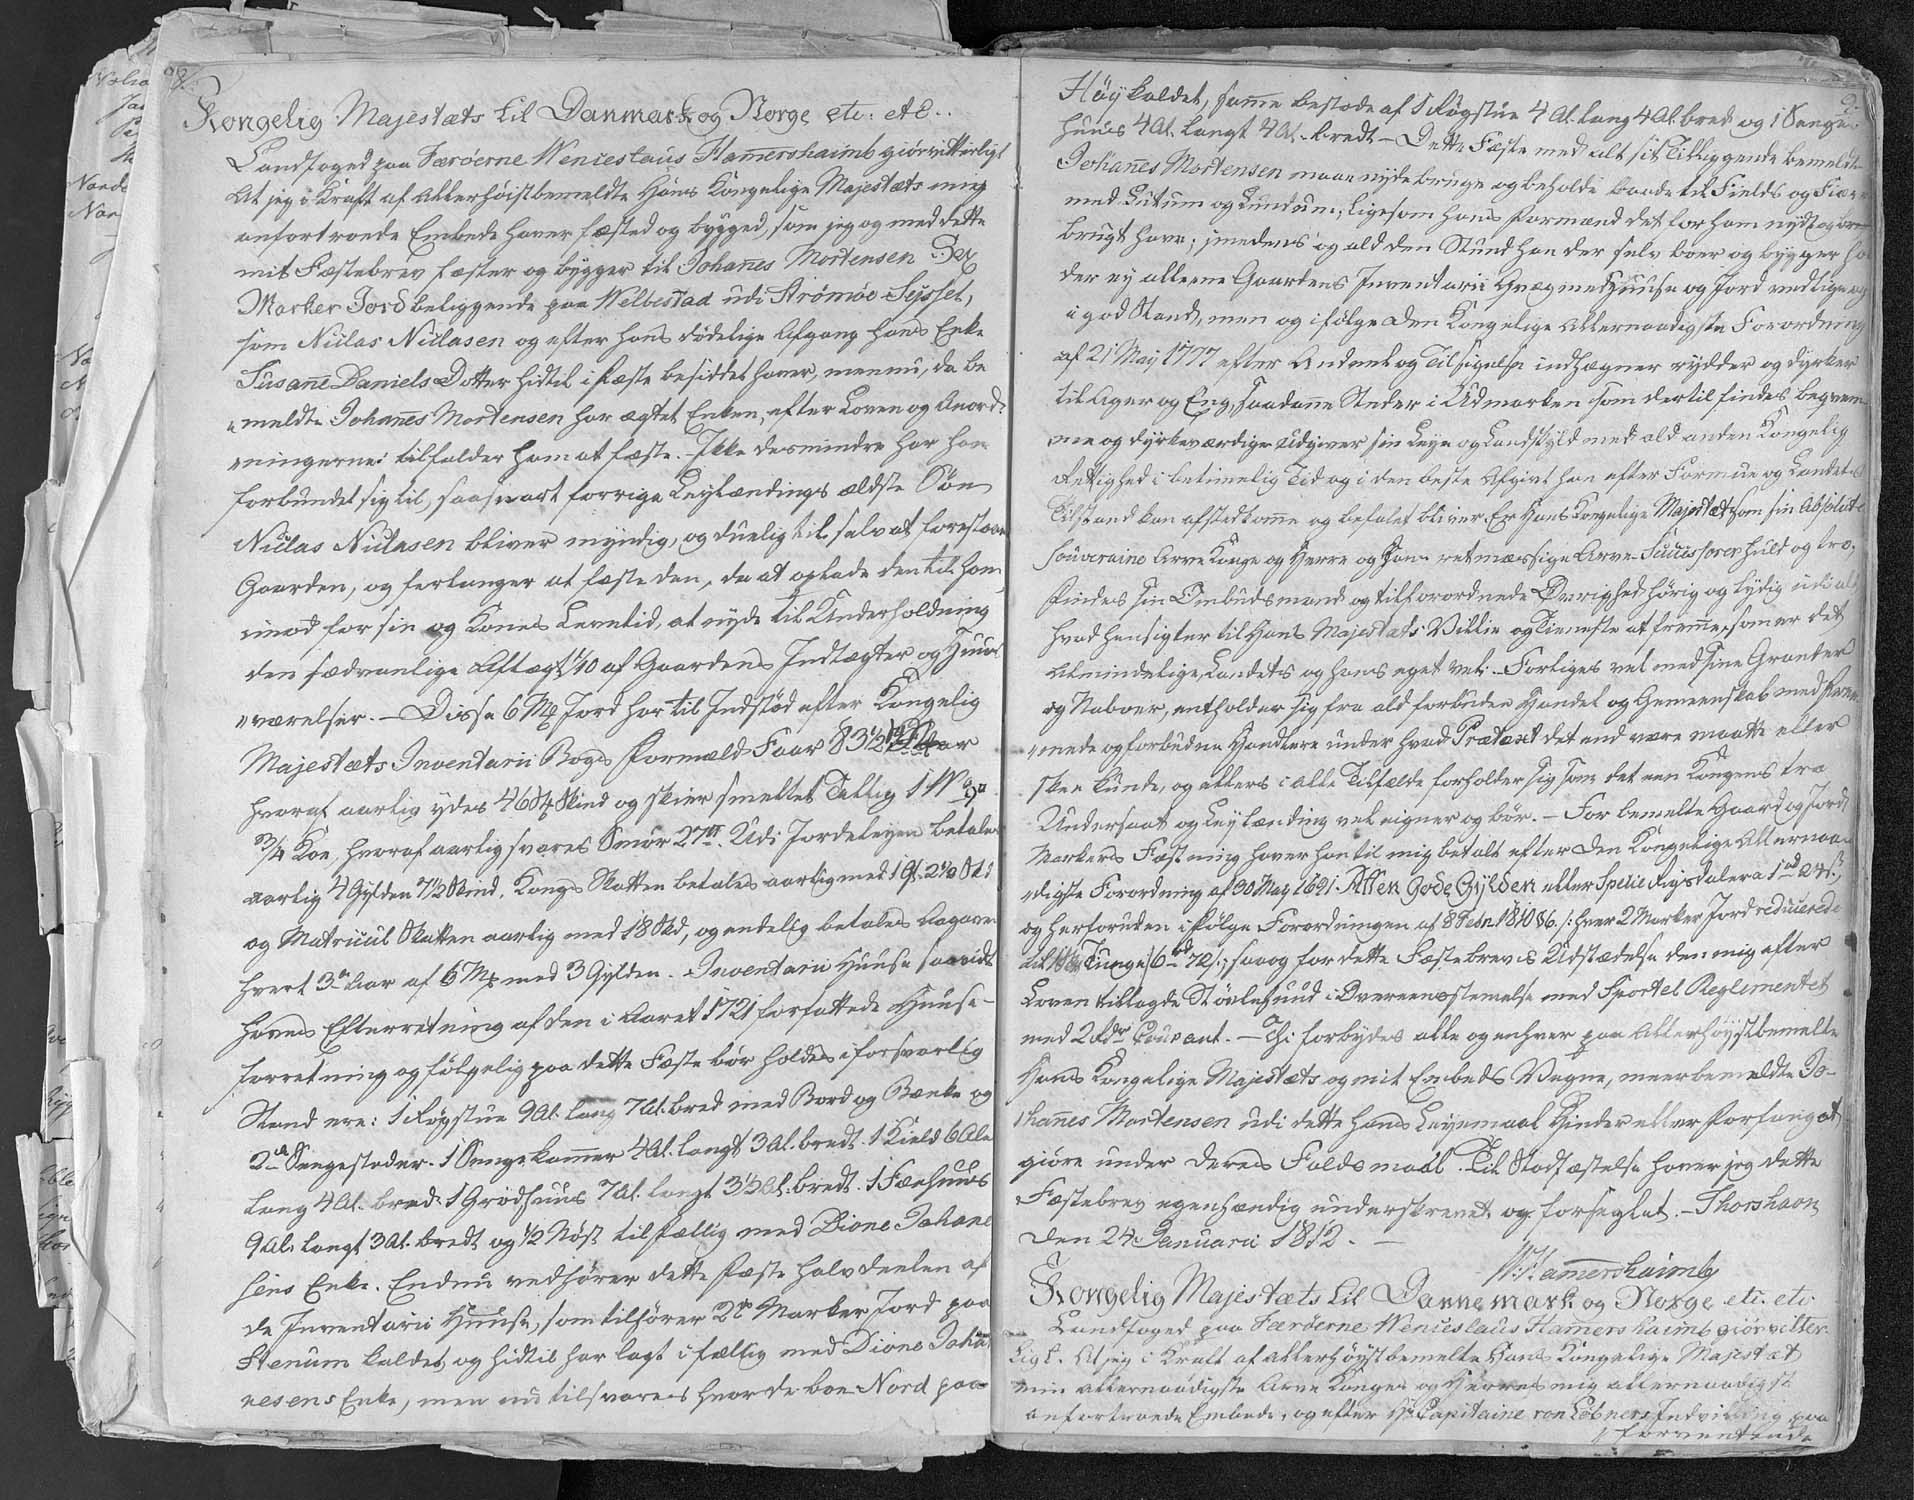 8.
Kongelig Majestæts til Danmark og Norge etc: etc..
Landfoged paa Færöerne Wenceslaus Hammershaimb giör vitterligt
At jeg i Kraft af Allerhöistbemeldte Hans Kongelige Majestæts mig
anfortroede Embede haver fæsted og bygged, som jeg og med dette
mit Fæstebrev fæster og bygger til Johanes Mortensen Sex
Marker Jord beliggende paa Welbestad udi Strömöe Sÿssel,
som Niclas Niclasen og efter hans dödelige Afgang hans Enke
Susane Daniels Dotter hidtil i Fæste besiddet haver, men nu, da be
„meldte Johanes Mortensen har ægtet Enken, efter Loven og Anord-
„ningerne tilfalder ham at fæste. Ikke desmindre har han
forbundet sig til, saasnart forrige Leylændings ældste Sön
Niclas Niclasen bliver myndig, og duelig til selv at forestaae
Gaarden, og forlanger at fæste den, da at oplade den til ham,
imod for sin og Kones Levetid, at nyde til Underholdning
den sædvanlige Aftægt 1/10 af Gaardens Indtægter og Huus
„værelser. – Disse 6 Mk Jord har til Indstöd efter Kongelig
Majestæts Inventarii Bogs Formæld Faar 83 1/2
hvoraf aarlig ydes 46 Skind og skier smeltet Tallig 1 W
3/4 Koe, hvoraf aarlig svares Smör 27 lb. Udi Jordeleyen betales
aarlig 4 Gylden 7 1/2 Skind, Kongs Skatten betales aarlig med 1 G. 2 1/2 Sk:
og Matricul Skatten aarlig med 18 Skd, og endelig betales
hvert 3de Aar af 6 Mk med 3 Gylden. – Inventarii Huuse saavidt
haves Efterretning af den i Aaret 1721 forfattede Huuse-
forretning og fölgelig paa dette Fæste bör holdes i forsvarlig
Stand ere: 1 Rögstue 9 Al. lang 7 Al. bred med Bord og Bænke og
2de Sengesteder. 1 Sengekammer 4 Al. langt 3 Al. bredt. 1 Kield 6 Ale
lang 4 Al. bred. 1 Grödhuus 7 Al. langt 3 1/2 Al. bredt. 1 Fæehuus
9 Al. langt 3 Al. bredt og 1/2 Nöst tilfællig med Dione Johane
sens Enke. Endnu vedhörer dette Fæste halvdeelen af
de Inventarii Huuse, som tilhörer 2de Marker Jord paa
Stenum kaldet, og hidtil har lagt i fællig med Dione Johan
nesens Enke, men nu tilsvares hvor de boe Nord paa
9.
Höy kaldet, samme bestode af 1 Rögstue 4 Al. lang 4 Al. bred og 1 Senge
huus 4 Al. langt 4 Al. bredt – Dette Fæste med alt sit Tilliggende bemeldte
Johanes Mortensen maae nyde bruge og beholde baade til Fields og Fiære
med Lutum og Lundum, ligesom hans Formænd det for ham nydt og
brugt have; imedens og ald den Stund han der selv boer og bygger
der ey alleene Gaardens Inventarii Qvæg med Huuse og Jord vedlige og
i god Stand, men og ifölge den Kongelige Allernaadigste Forordning
af 21 May 1777 efter Andeel og Tilsigelse indhægner rydder og dyrker
til Ager og Eng, saadanne Steder i Udmarken som dertil findes beqvem
me og dyrkeværdige udgiver sin Leye og Landskyld med ald anden Kongelig
Rettighed i betimelig Tid og i den beste Afgivt han efter Formue og Landets
Tilstand kan afstedkomme og befalet bliver. Er Hans Kongelige Majestæt som sin Absolute
souveraine Arve Konge og Herre og Hans retmæssige Arve-Successorer huld og tro.
Findes sin Ombudsmand og tilforordnede Övrighed hörig og lydig udi alt
hvad hensigter til Hans Majestæts Villie og Tieneste at fremme, som er det
Almindelige, Landets og hans eget vel. – Forliges vel med sine Grander
og Naboer, entholder sig fra ald forbuden Handel og Gemeenskab med Frem
„mede og forbudne Handlere under hvad Prætext det end være maatte eller
skee kunde, og ellers i alle Tilfælde forholder sig som det een Kongens tro
Undersaat og Leylænding vel eigner og bör. – For bemelte Gaard og Jord
Markers Fæstning haver han til mig betalt efter den Kongelige Allernaa
„digste Forordning af 30 May 1691. Atten Gode Gylden eller Specie Rigsdaler a
og herforuden ifölge Forordningen af 8 Febr 1810 §6. /: hver 2 Marker Jord reducerede
til Tunge/ 6 rd 72 s.; saaog for dette Fæstebrevs Udstædelse den mig efter
Loven tillagde Stövlehund i Overeenstemelse med Sportel Reglementet
med 2 Rdr Courant. – Thi forbydes alle og enhver paa Allerhöystbemelte
Hans Kongelige Majestæts og mit Embeds Vegne, meerbemeldte Jo-
hanes Mortensen udi dette hans Leyemaal Hinder eller Forfang at
giöre under deres Faldsmaal. Til Stadfæstelse haver jeg dette
Fæstebrev egenhændig underskrevet og forseglet. – Thorshavn
den 24 Januarii 1812. –
W: Hamershaimb
Kongelig Majestæts til Dannemark og Norge etc. etc
Landfoged paa Færöerne Wenceslaus Hamershaimb giör vitter-
ligt. At jeg i Kraft af allerhöystbemelte Hans Kongelige Majestæt
min allernaadigste Arve Konges og Herres mig allernaadigst
anfortroede Embede, og efter Hr Capitaine von Löbners Indvilling paa
forventende